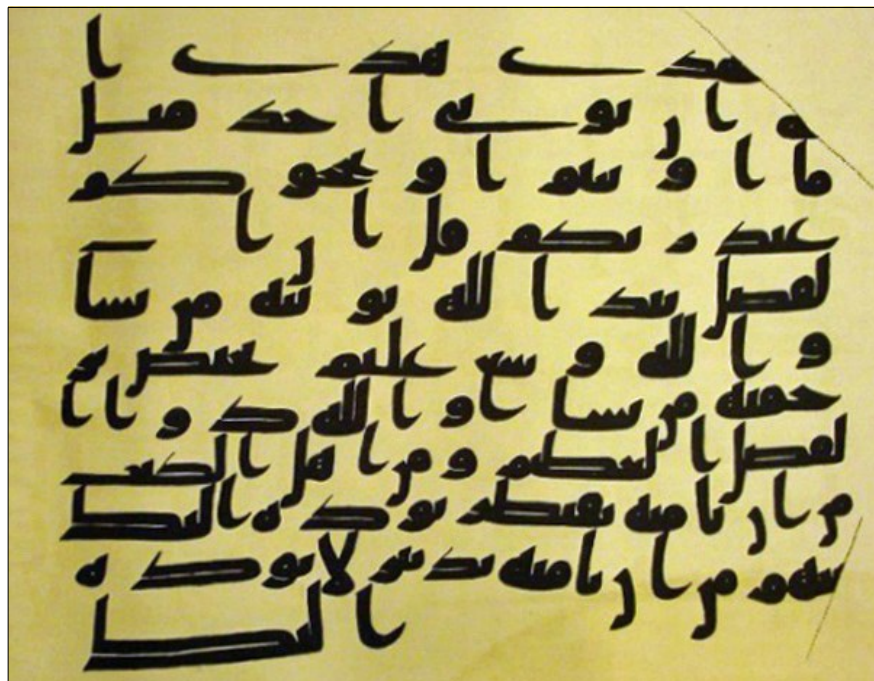 هدى هدى ا
لله ان يوتى احد مثل
ما اوتيتم او يحجوكم
عند ربكم قل ان ا
لفضل بيد الله يوتيه من يشا
و الله وسع عليم يختص بر
حمته من يشا و الله ذو ا
لفضل العظيم و من اهل الكتب
من ان تامنه بقنطر يوده اليك
و منهم من ان تامنه بدينر لا يوده
اليك